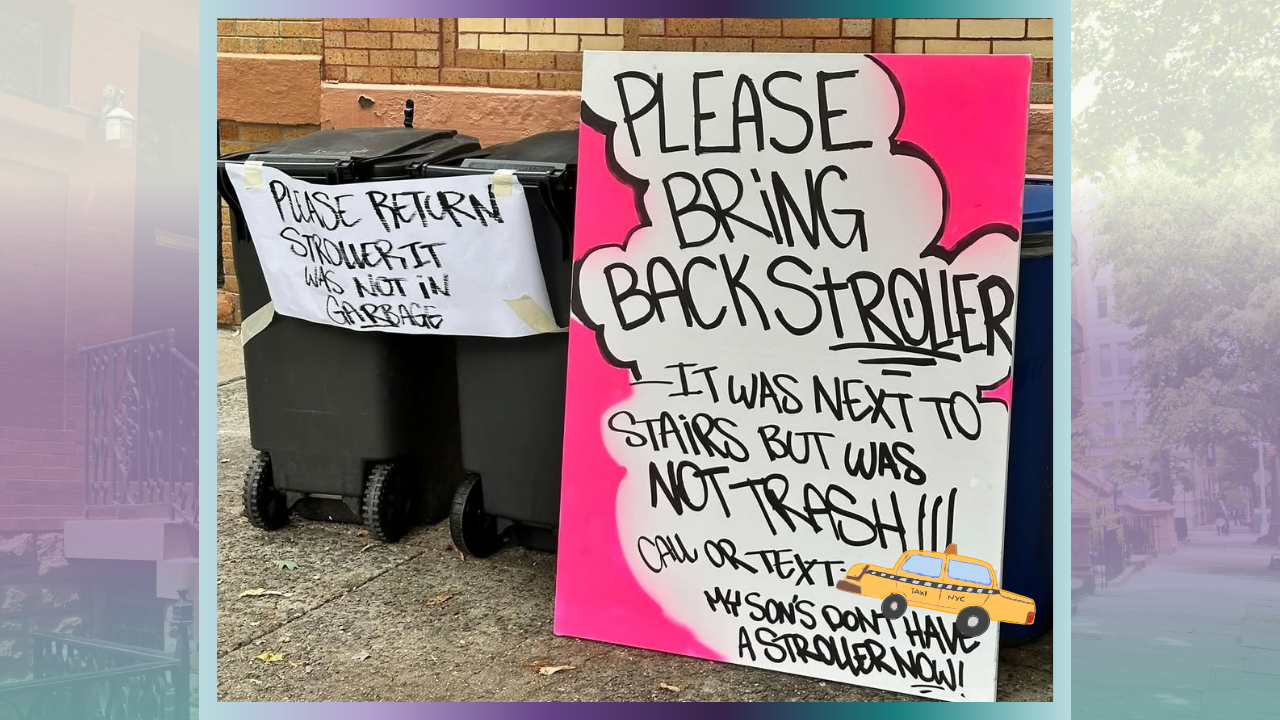 PLEASE RETURN
STROLLER IT
WAS NOT IN
GARBAGE
PLEASE
BRiNG
BACK STROLLER
—IT WAS NEXT TO
STAiRS BUT WAS
NOT TRASH!!!
CALL OR TEXT:
MY SON'S DON'T HAVE
A STROLLER NOW!
TAXI NYC